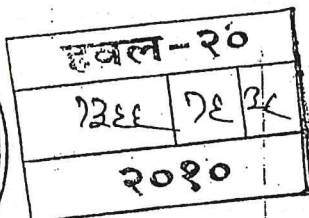 हवल-२०
१३६६ १६ ३८
२०१०